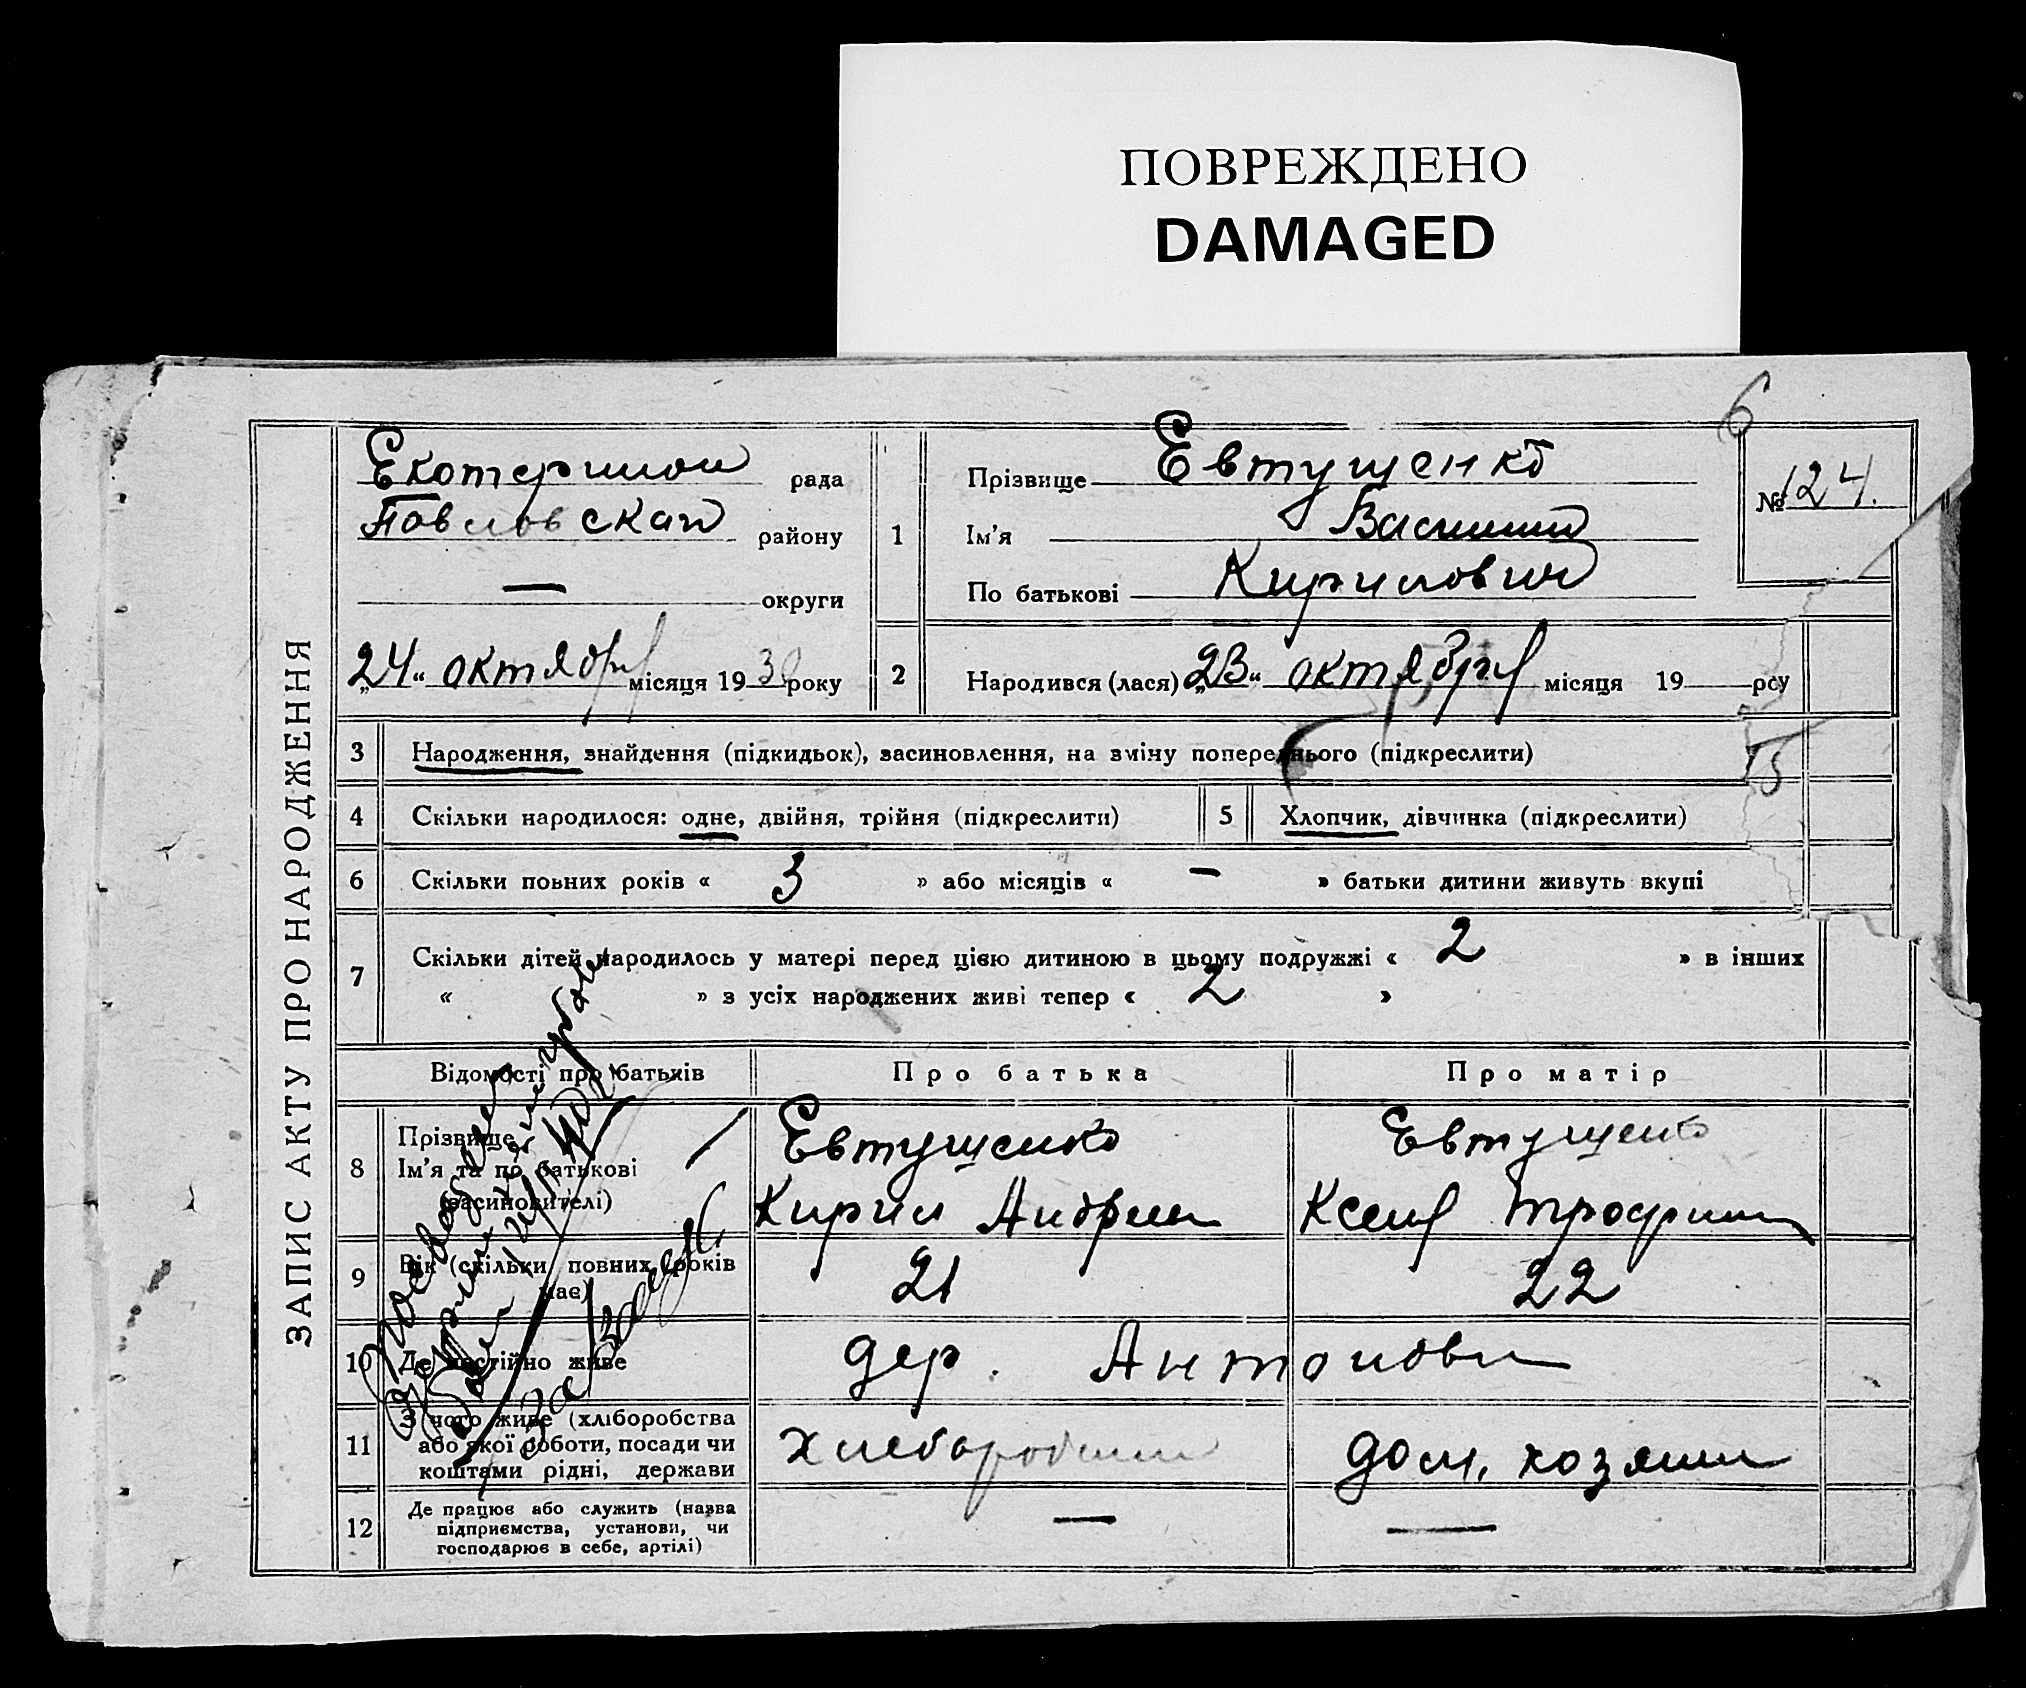 ПОВРЕЖДЕНО
DAMAGED
6
ЗАПИС АКТУ ПРО НАРОДЖЕННЯ
рада
району
— округи
„24“ октября місяця 1930 року
1
Прізвище Евтущенко
Ім'я Василий
По батькові Кирилович
№ 124.
2 Народився (лася) „23“ октября місяця 19 року
3 Народження, знайдення (підкидьок), засиновлення, на зміну попереднього (підкреслити)
4 Скільки народилося: одне, двійня, трійня (підкреслити)
5 Хлопчик, дівчинка (підкреслити)
6 Скільки повних років « 3 » або місяців « — » батьки дитини живуть вкупі
7 Скільки дітей народилось у матері перед цією дитиною в цьому подружжі « 2 » в інших
« » з усіх народжених живі тепер « 2 »
Відомості про батьків Про батька Про матір
8 Прізвище Евтущенко Евтущенко
Ім'я та по батькові
(засиновителі)
Кирил
9 Вік (скільки повних років
має) 21 22
10 Де постійно живе дер.
11 З чого живе (хліборобства
або якої роботи, посади чи
коштами рідні, держави
дом.
12 Де працює або служить (назва
підприємства, установи, чи
господарює в себе, артілі)
— —